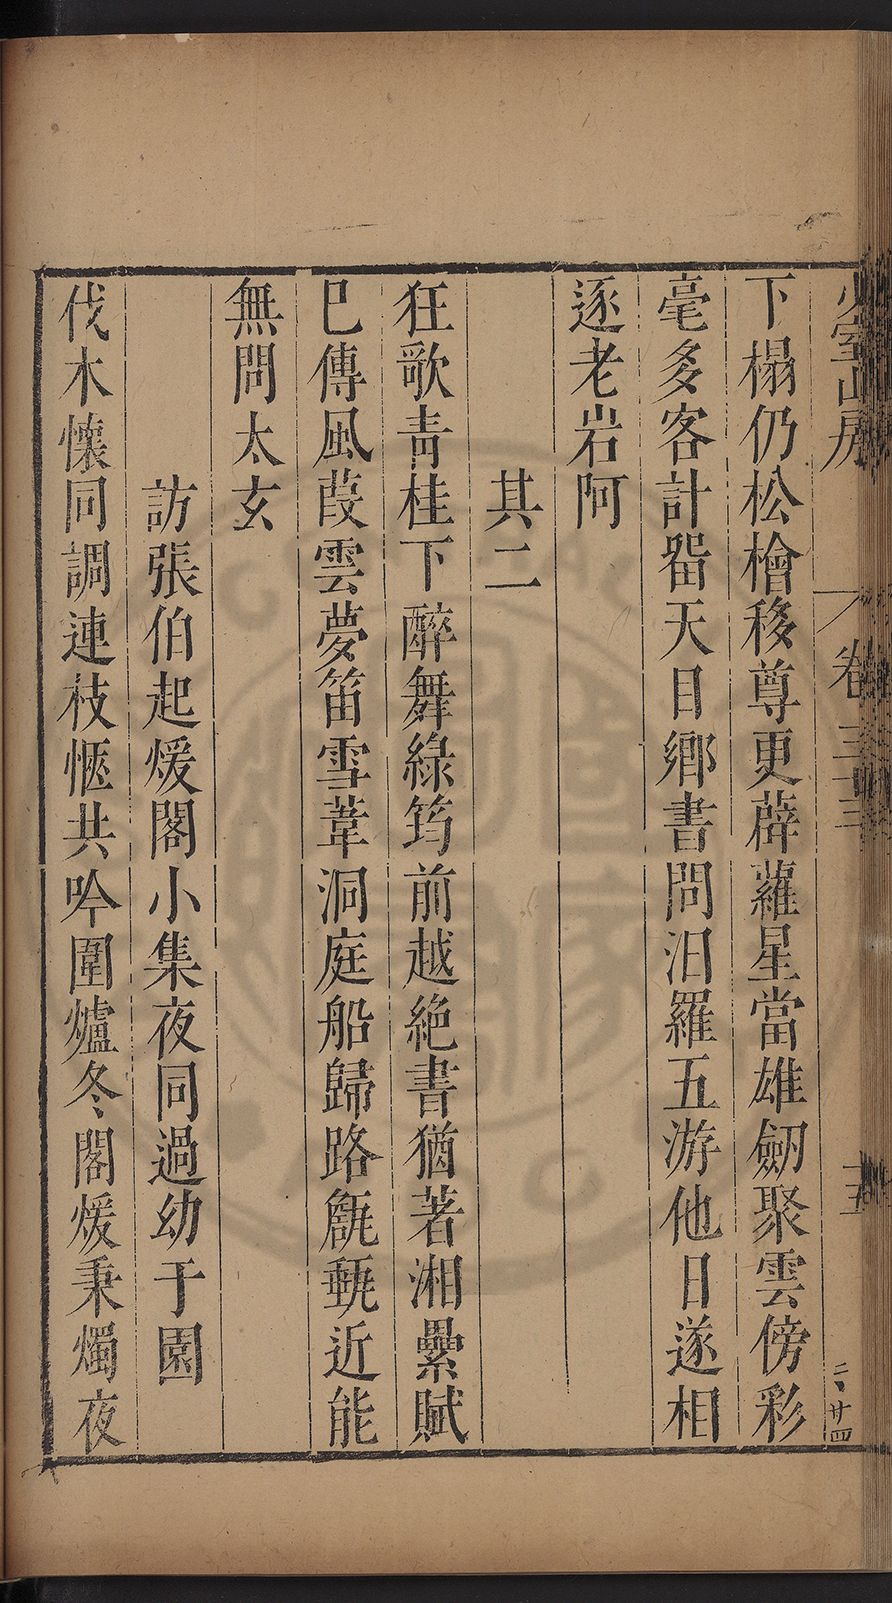 少室山房
卷三十三
二、廿四
下榻仍松檜移尊更薜蘿星當雄劒聚雲傍彩
毫多客計畱天目鄉書問汨羅五游他日遂相
逐老岩阿
其二
狂歌青桂下醉舞綠筠前越絶書猶著湘纍賦
已傳風葭雲夢笛雪葦洞庭船歸路
近能
無問太玄
訪張伯起煖閣小集夜同過幼于園
伐木懷同調連枝愜共吟圍爐冬閣煖秉燭夜